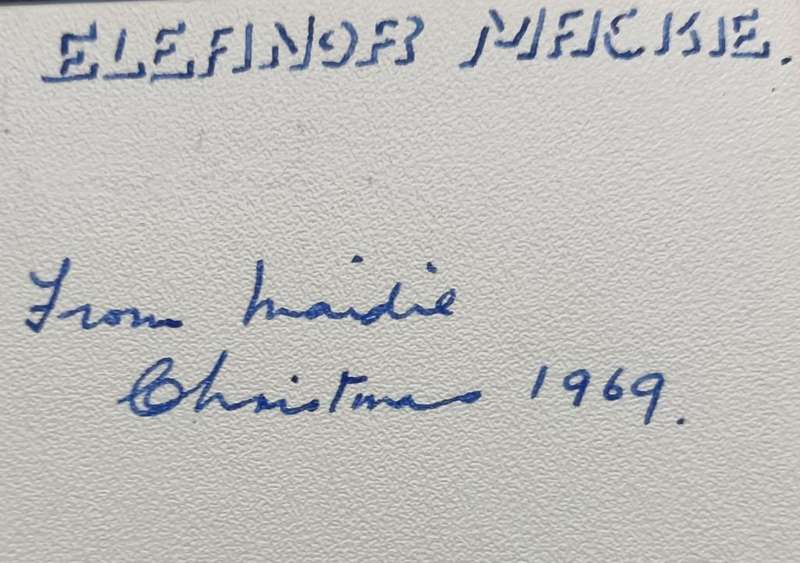 ELEANOR MACKIE.
From Maidie
Christmas 1969.